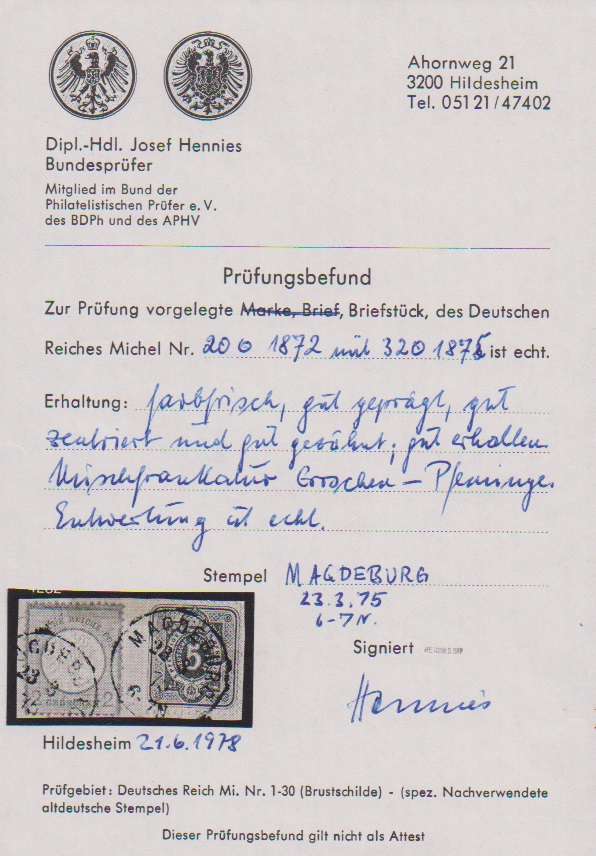 Ahornweg 21
3200 Hildesheim
Tel. 05121/47402
Dipl.-Hdl. Josef Hennies
Bundesprüfer
Mitglied im Bund der
Philatelistischen Prüfer e. V.
des BDPh und des APHV
Prüfungsbefund
Zur Prüfung vorgelegte Marke, Brief, Briefstück, des Deutschen
Reiches Michel Nr. 20 0 1872 mit 32 0 1875 ist echt.
Erhaltung: farbfrisch, gut geprägt, gut
zentriert und gut gezähnt; gut erhalten
Mischfrankatur Groschen – Pfennige.
Entwertung ist echt.
Stempel MAGDEBURG
23.3.75
6-7N.
Signiert HENNIES BPP
Hennies
MAGDEBURG
23 3
5
2 GROSCHEN 2
Hildesheim 21.6.1978
Prüfgebiet: Deutsches Reich Mi. Nr. 1-30 (Brustschilde) - (spez. Nachverwendete
altdeutsche Stempel)
Dieser Prüfungsbefund gilt nicht als Attest